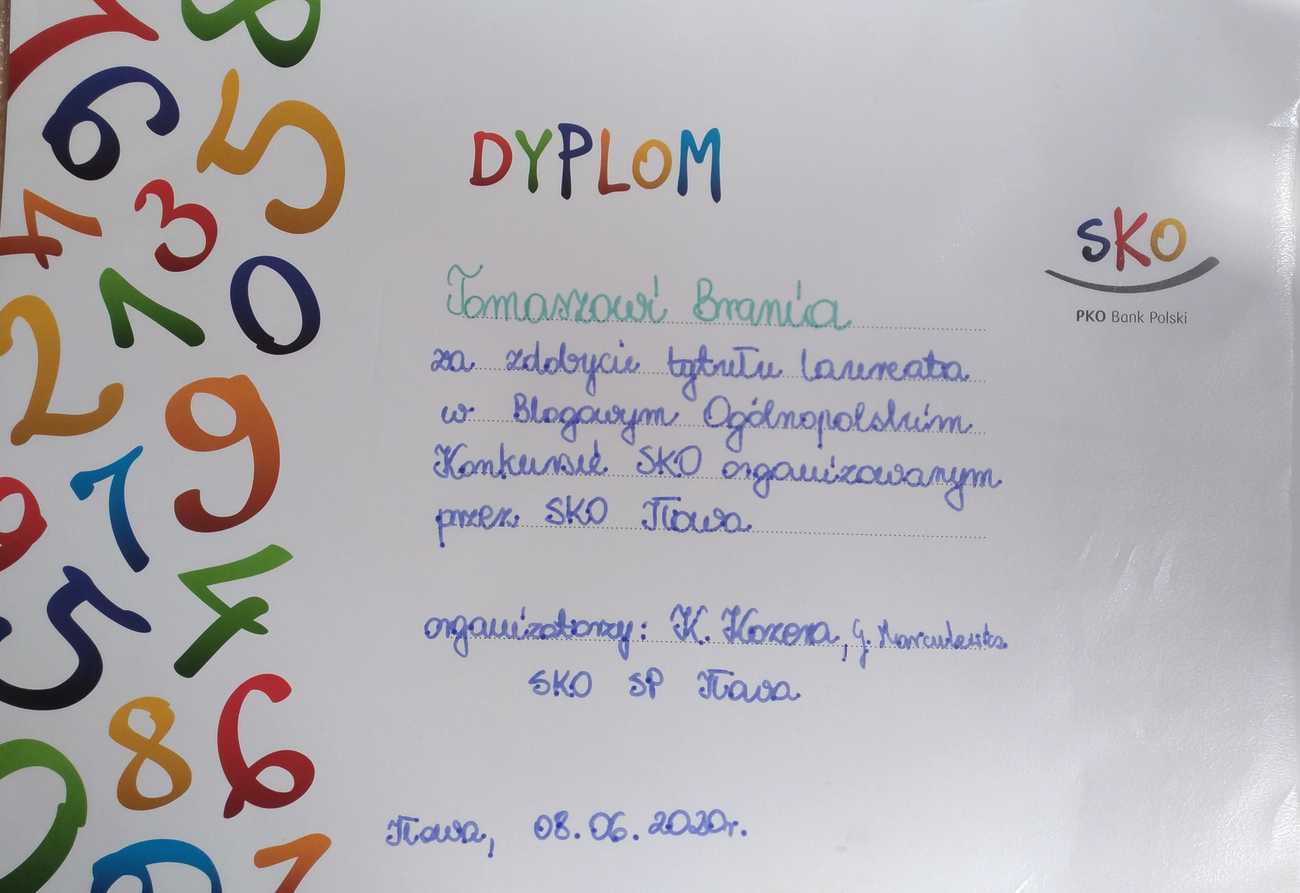 DYPLOM
SKO
PKO Bank Polski
Tomaszowi Brania
za zdobycie tytułu laureata
w Blogowym Ogólnopolskim
Konkursie SKO organizowanym
przez SKO Iława
organizatorzy: K. Kozera, G. Marculewska
SKO SP Iława
Iława, 08.06.2020r.
8
6
5
4
3
1
0
2
9
7
4
5
8
6